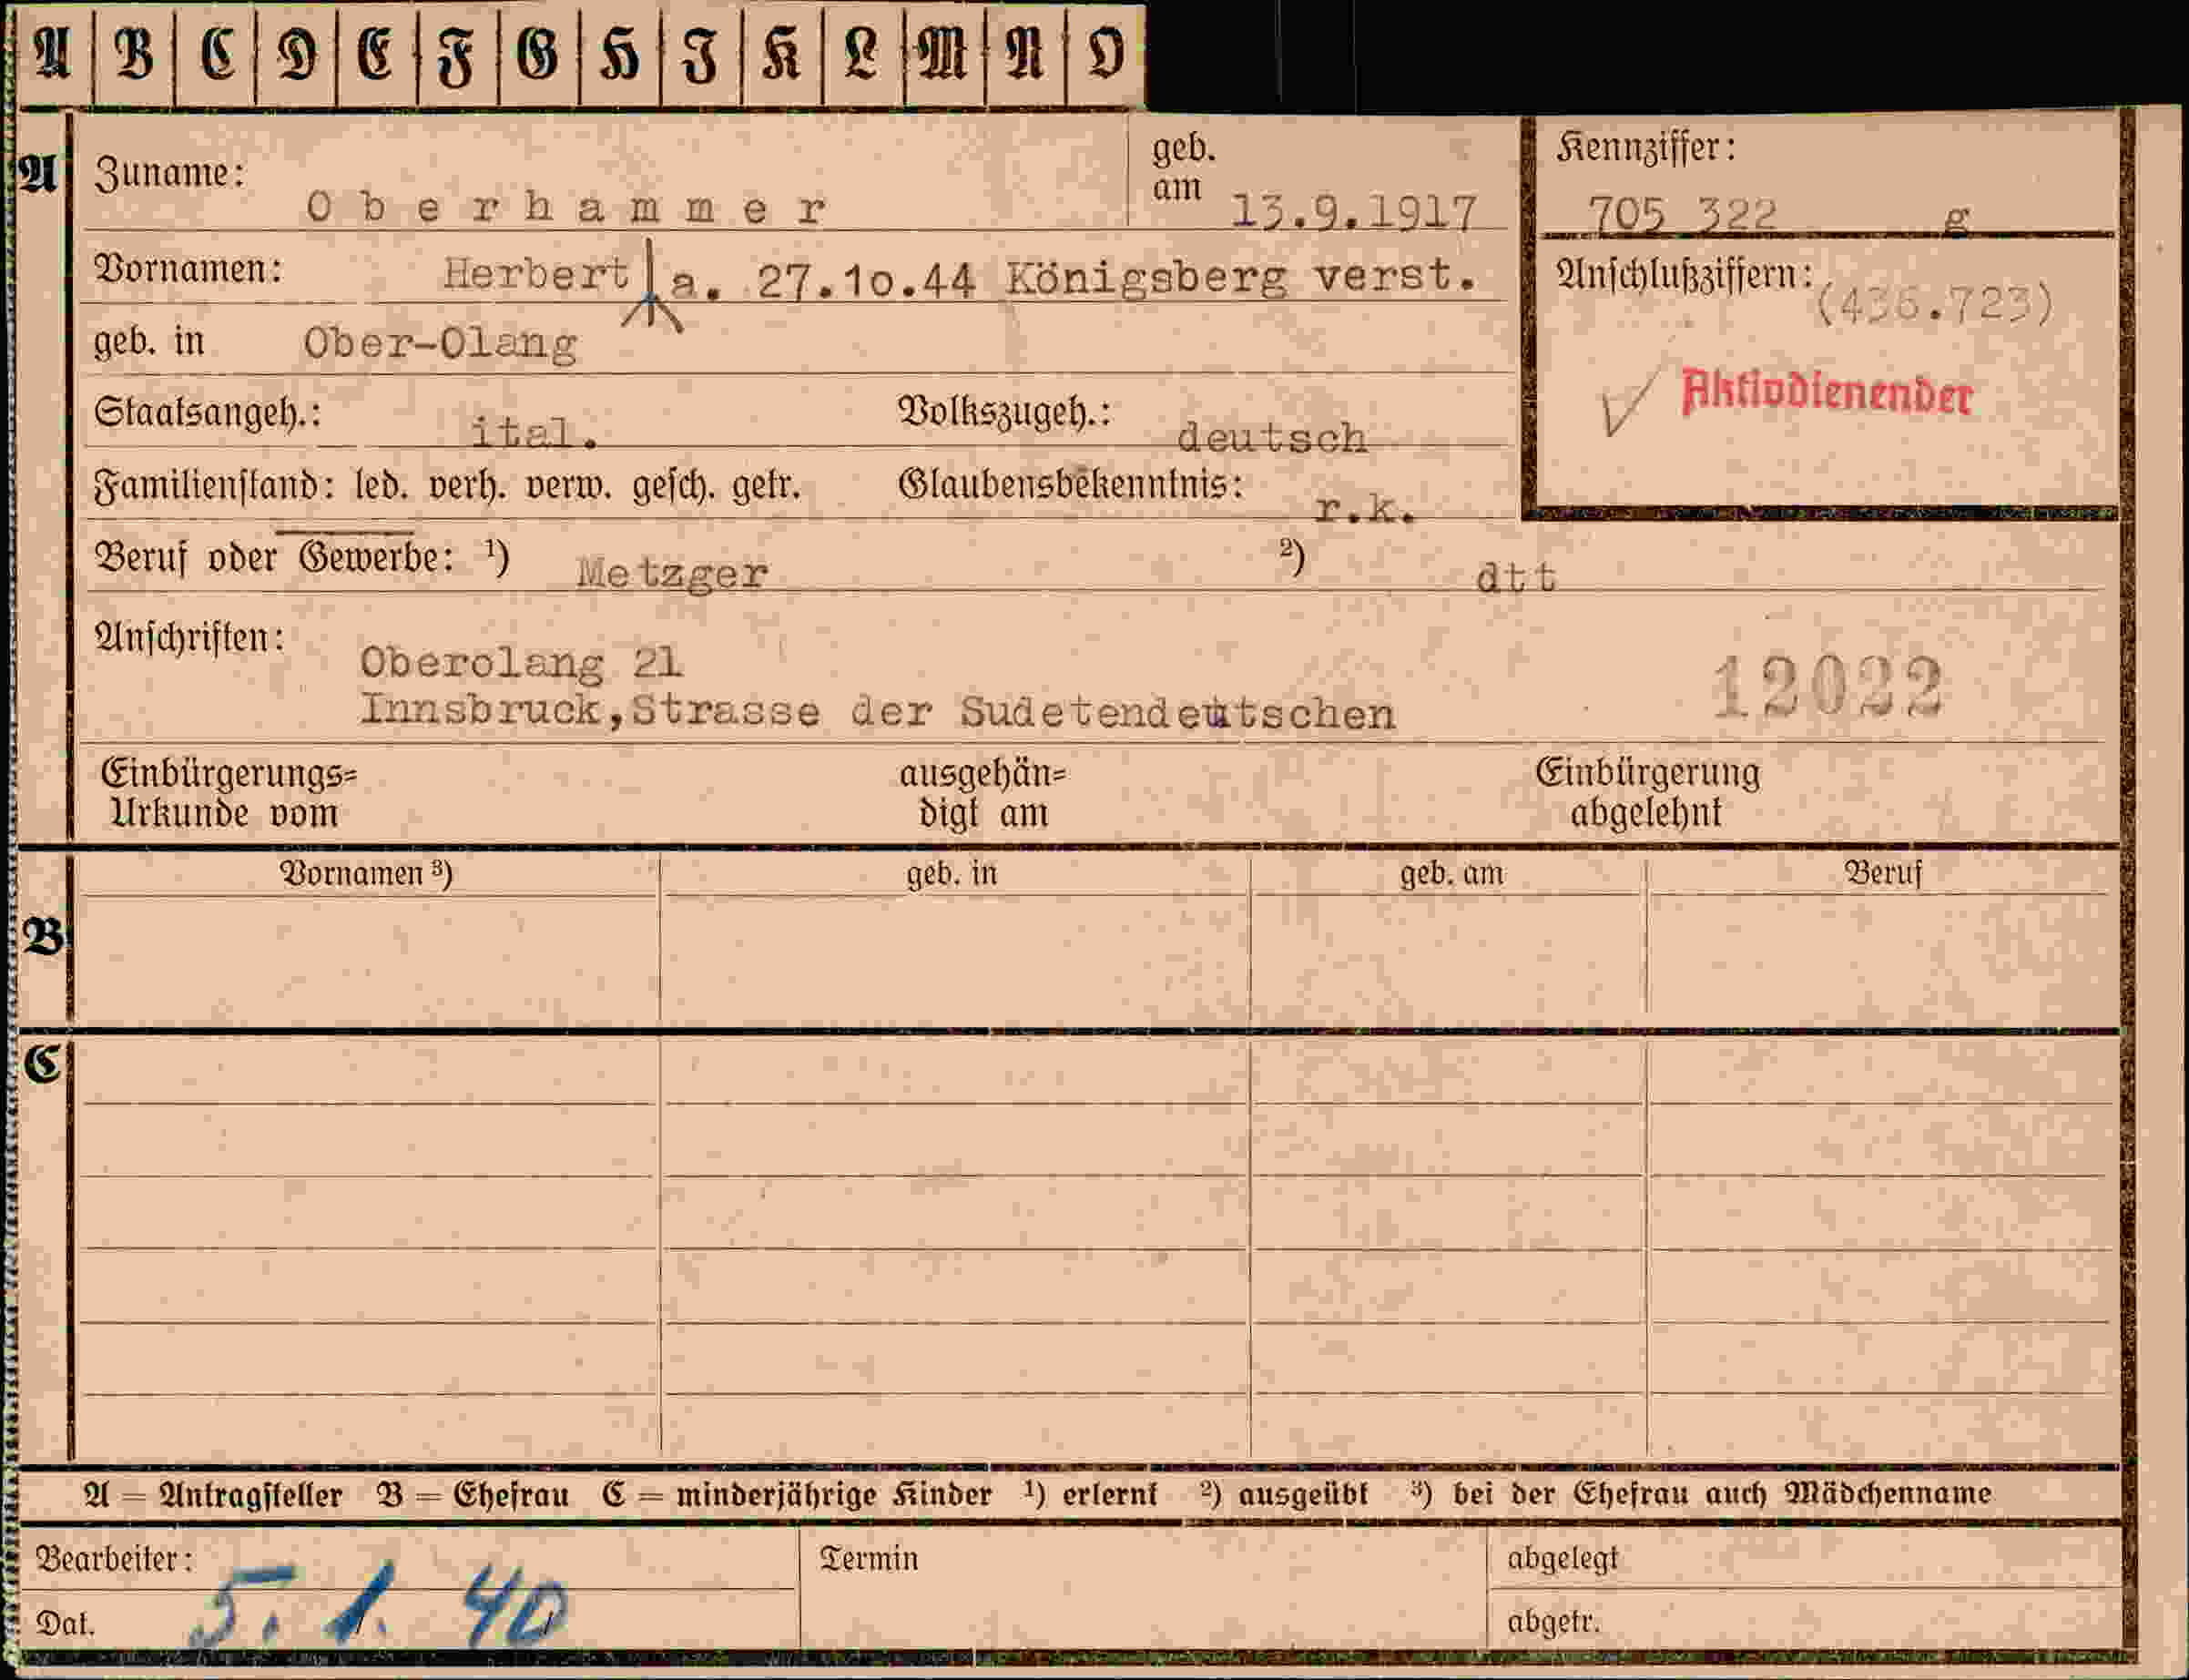 A B C D E F G H I K L M N O
A Zuname: Oberhammer geb. am 13.9.1917
Kennziffer: 705 322 g
Vornamen: Herbert a. 27.10.44 Königsberg verst.
Anschlußziffern: (436.723)
geb. in Ober-Olang
Aktivdienender
Staatsangeh.: ital. Volkszugeh.: deutsch
Familienstand: led. verh. verw. gesch. getr. Glaubensbekenntnis: r.k.
Beruf oder Gewerbe: ¹) Metzger ²) dtt
Anschriften: Oberolang 21
Innsbruck,Strasse der Sudetendeutschen 12022
Einbürgerungs= ausgehän= Einbürgerung
Urkunde vom digt am abgelehnt
Vornamen ³) geb. in geb. am Beruf
B
C
A = Antragsteller B = Ehefrau C = minderjährige Kinder ¹) erlernt ²) ausgeübt ³) bei der Ehefrau auch Mädchenname
Bearbeiter: Termin abgelegt
Dat. 5. 1. 40 abgetr.